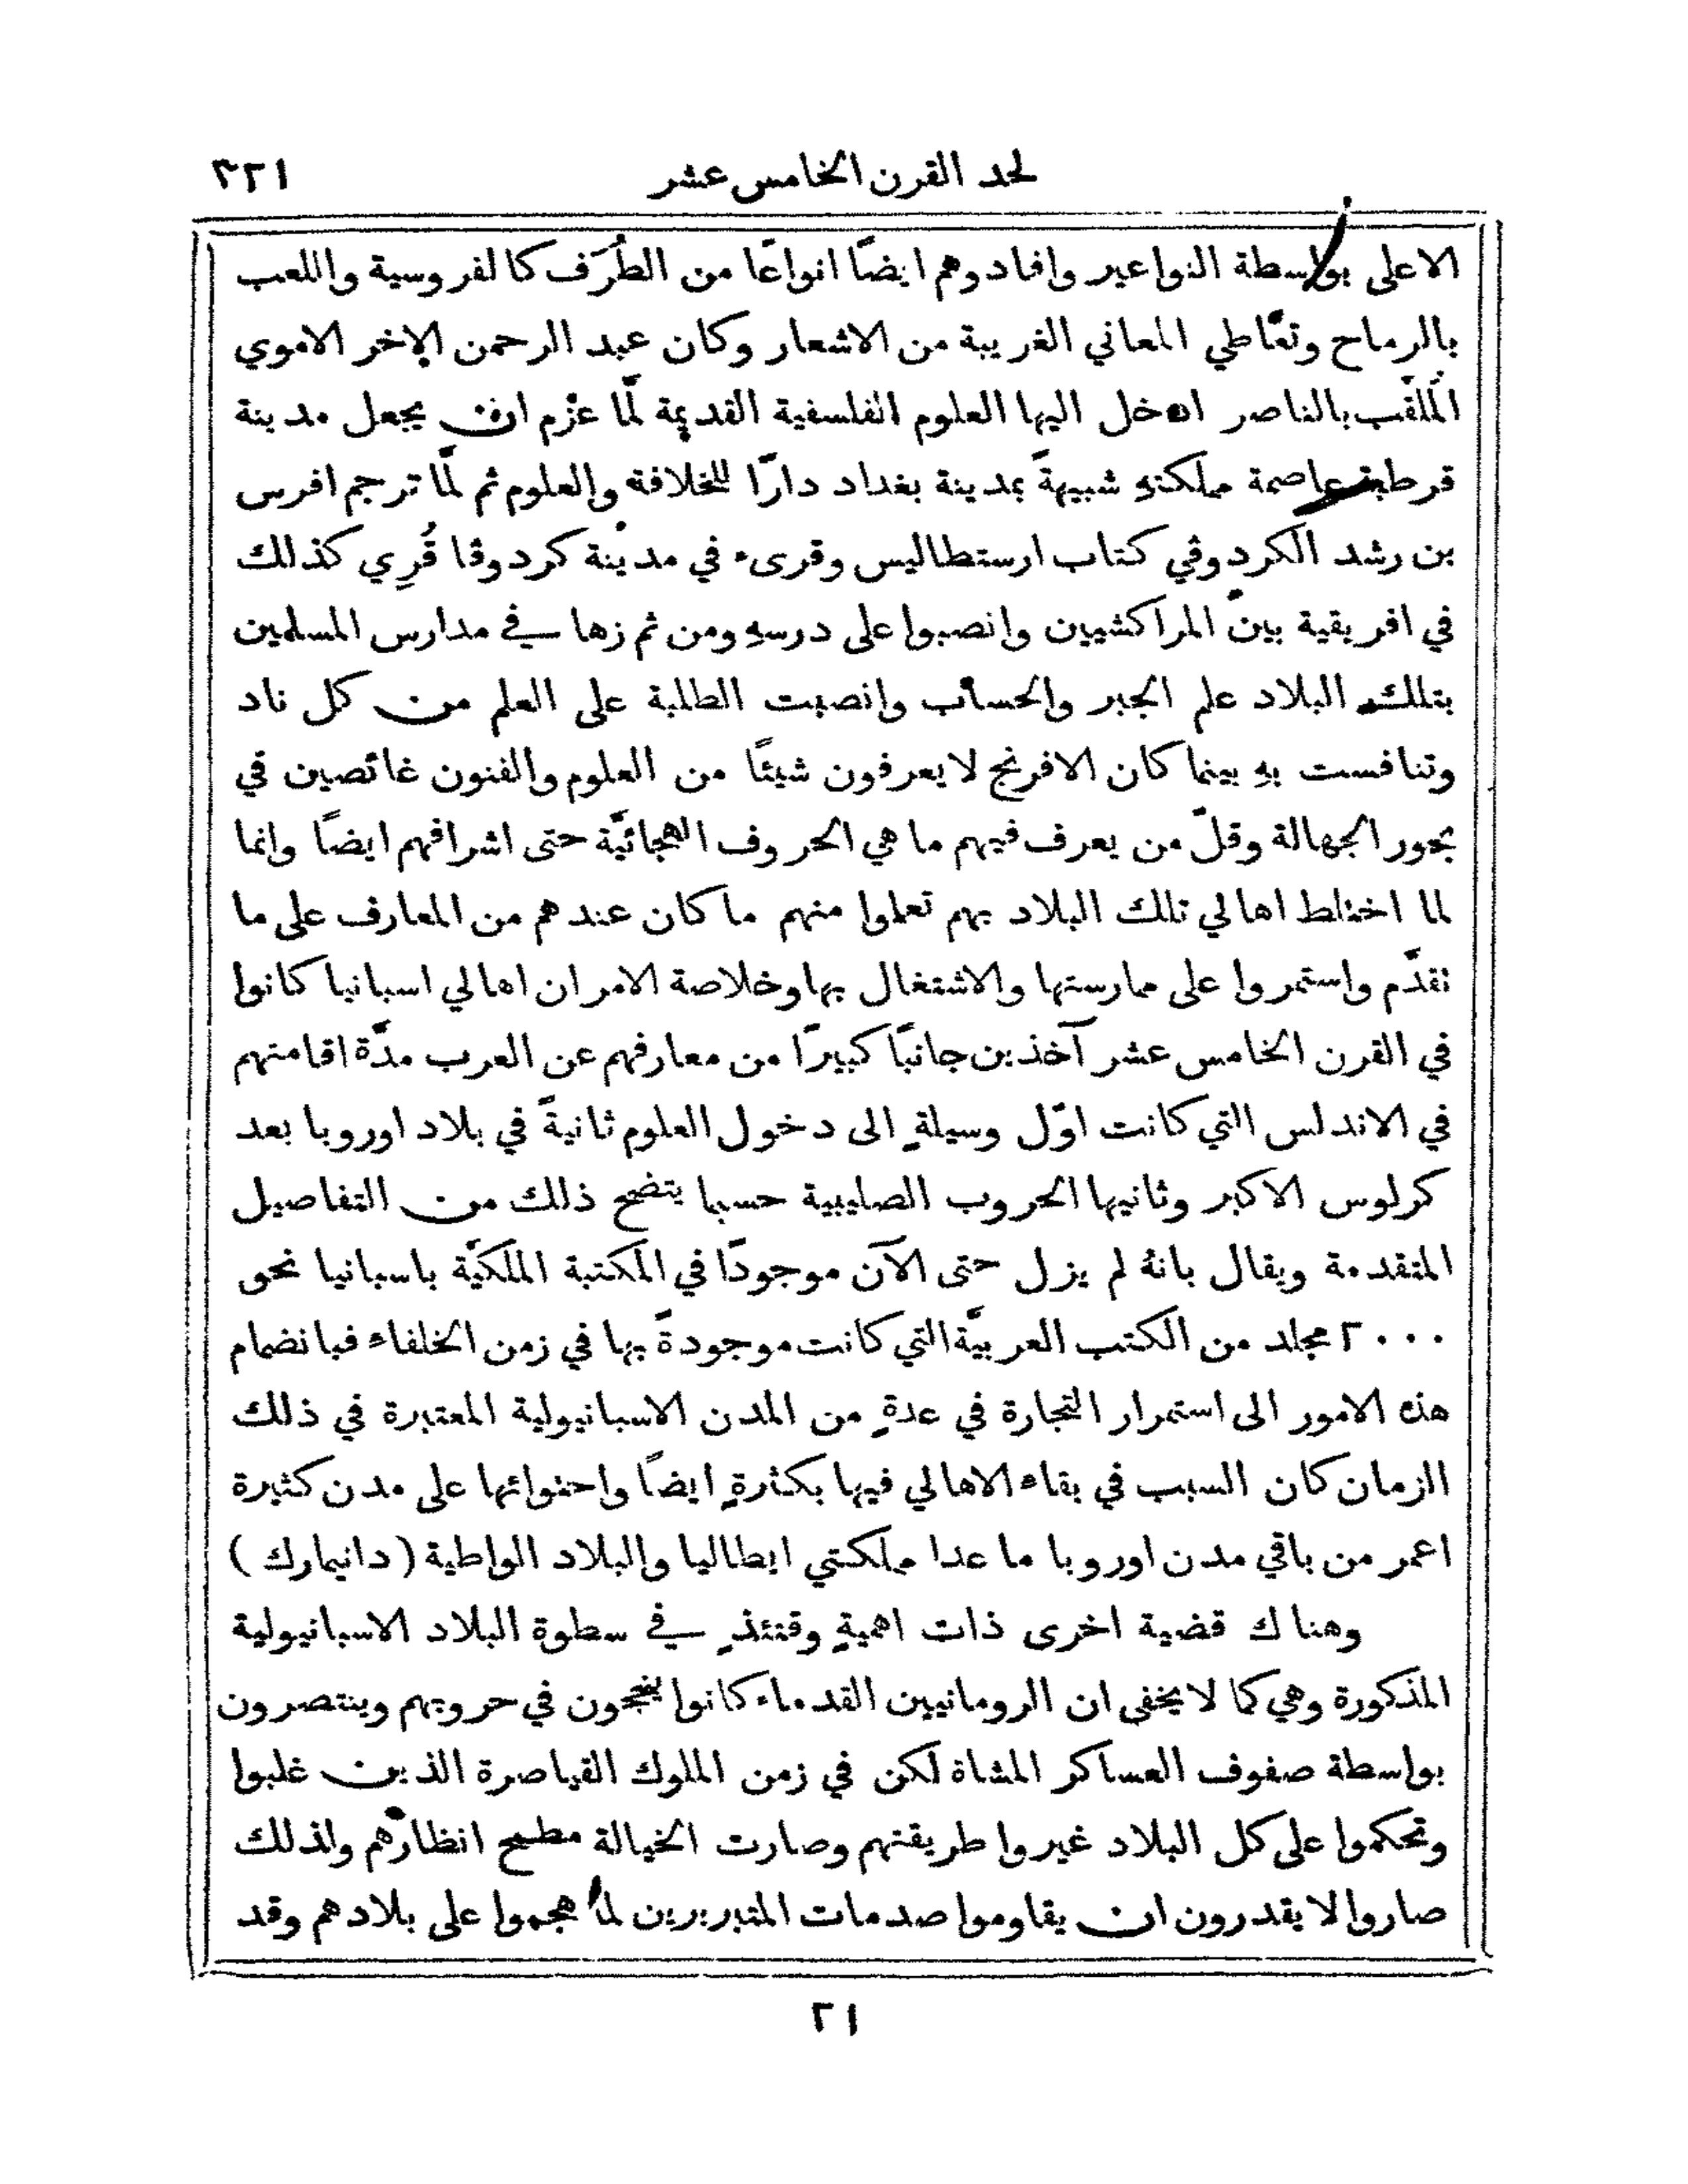 لحد القرن الخامس عشر ٣٢١
الاعلى بواسطة النواعير وافادوهم ايضًا انواعًا من الطُرَف كالفروسية واللعب
بالرماح وتعاطي المعاني الغريبة من الاشعار وكان عبد الرحمن الاخر الاموي
الملقَّب بالناصر ادخل اليها العلوم الفلسفية القديمة لمَّا عزم ان يجعل مدينة
قرطبة عاصمة مملكتهِ شبيهةً بمدينة بغداد دارًا للخلافة والعلوم ثم لمَّا ترجم افرس
بن رشد الكردوفي كتاب ارستطاليس وقرىء في مدينة كردوفا قُرِي كذلك
في افريقية بين المراكشيين وانصبوا على درسهِ ومن ثم زها في مدارس المسلمين
بتلك البلاد علم الجبر والحساب وانصبت الطلبة على العلم من كل ناد
وتنافست بهِ بينما كان الافرنج لا يعرفون شيئًا من العلوم والفنون غائصين في
بحور الجهالة وقلَّ من يعرف فيهم ما هي الحروف الهجائيَّة حتى اشرافهم ايضًا وانما
لما اختلط اهالي تلك البلاد بهم تعلموا منهم ما كان عندهم من المعارف على ما
تقدَّم واستمروا على ممارستها والاشتغال بها وخلاصة الامر ان اهالي اسبانيا كانوا
في القرن الخامس عشر آخذين جانبًا كبيرًا من معارفهم عن العرب مدَّة اقامتهم
في الاندلس التي كانت اوَّل وسيلةٍ الى دخول العلوم ثانيةً في بلاد اوروبا بعد
كرلوس الاكبر وثانيها الحروب الصليبية حسبما يتضح ذلك من التفاصيل
المتقدمة ويقال بانهُ لم يزل حتى الآن موجودًا في المكتبة الملكيَّة باسبانيا نحو
٢٠٠٠ مجلد من الكتب العربيَّة التي كانت موجودةً بها في زمن الخلفاء فبانضمام
هذه الامور الى استمرار التجارة في عدةٍ من المدن الاسبانيولية المعتبرة في ذلك
الزمان كان السبب في بقاء الاهالي فيها بكثرةٍ ايضًا واحتوائها على مدن كثيرة
اعمر من باقي مدن اوروبا ما عدا مملكتي ايطاليا والبلاد الواطية (دانيمارك)
وهناك قضية اخرى ذات اهميةٍ وقتئذٍ في سطوة البلاد الاسبانيولية
المذكورة وهي كما لا يخفى ان الرومانيين القدماء كانوا ينجحون في حروبهم وينتصرون
بواسطة صفوف العساكر المشاة لكن في زمن الملوك القياصرة الذين غلبوا
وتحكموا على كل البلاد غيروا طريقتهم وصارت الخيالة مطمح انظارهم ولذلك
صاروا لا يقدرون ان يقاوموا صدمات المتبربرين لما هجموا على بلادهم وقد
٢١